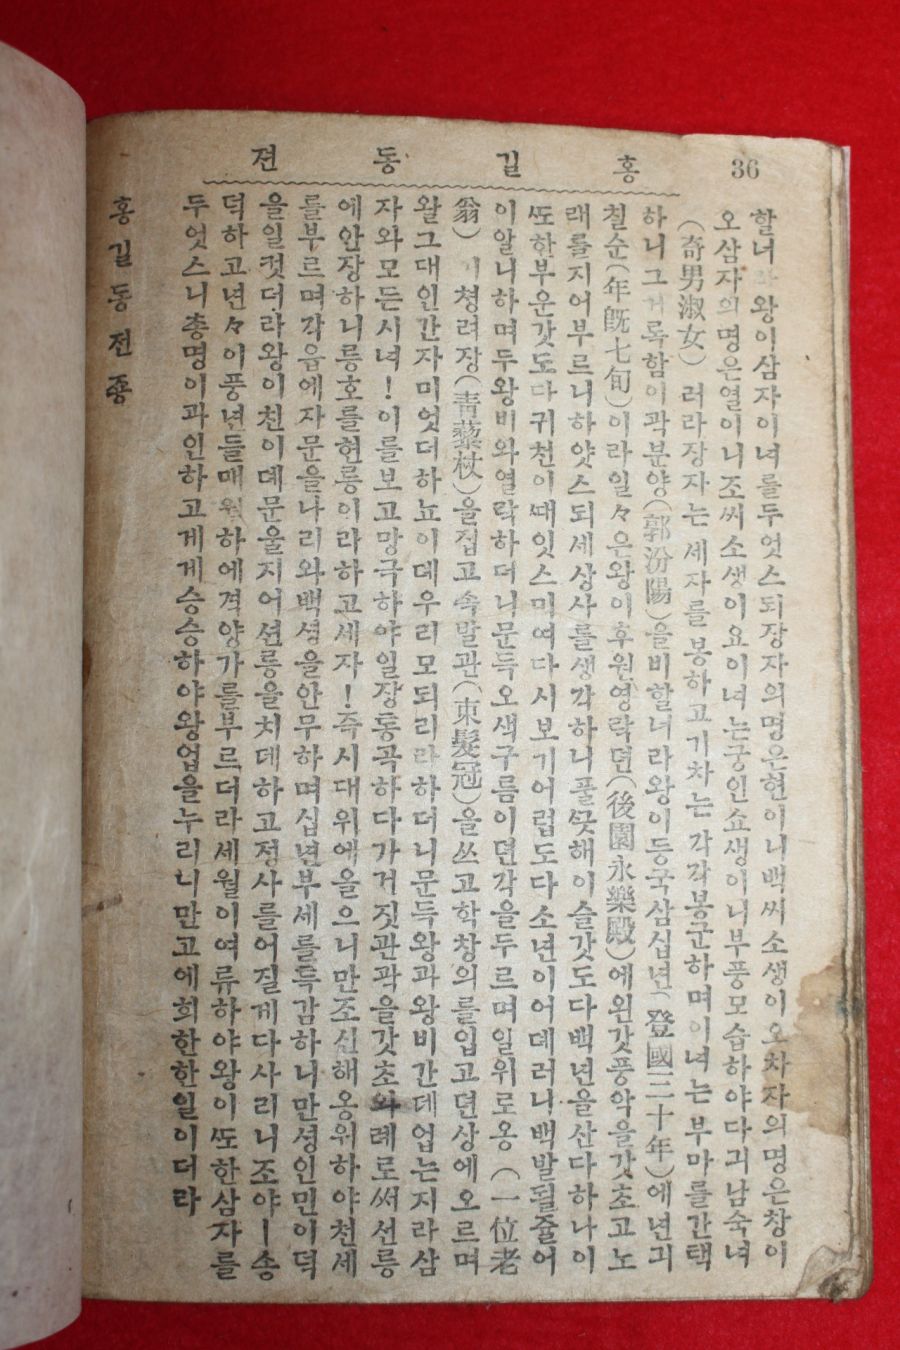 홍길동젼
36
할너라왕이삼자이녀를두엇스되장자의명은현이니백씨소생이오차자의명은창이
오삼자의명은열이니조씨소생이요이녀는궁인쇼생이니부풍모습하야다긔남숙녀
(奇男淑女)러라장자는세자를봉하고기차는각각봉군하며이녀는부마를간택
하니그거록함이곽분양(郭汾陽)을비할너라왕이등국삼십년(登國三十年)에년긔
칠순(年旣七旬)이라일々은왕이후원영락뎐(後園永樂殿)에왼갓풍악을갓초고노
래를지어부르니하얏스되세상사를생각하니풀ᄭᅳᆺ해이슬갓도다백년을산다하나이
ᄯᅩ한부운갓도다귀천이ᄯᅢ잇스미여다시보기어렵도다소년이어데러냐백발될쥴어
이알니하며두왕비와열락하더니문득오색구름이뎐각을두르며일위로옹(一位老
翁)이쳥려장(靑藜杖)을접고속발관(束髮冠)을쓰고학창의를입고뎐상에오르며
왈그대인간자미엇더하뇨이뎨우리모되리라하더니문득왕과왕비간데업는지라삼
자와모든시녀!이를보고망극하야일장통곡하다가거짓관곽을갓초와례로써선릉
에안장하니릉호를현릉이라하고세자!즉시대위에올으니만조신해옹위하야천세
를부르며각읍에자문을나리와백셩을안무하며십년부세를특감하니만셩인민이덕
을일컷더라왕이친이뎨문울지어션릉을치뎨하고정사를어질게다사리니조야ㅣ송
덕하고년々이풍년들매원하에격양가를부르더라세월이여류하야왕이ᄯᅩ한삼자를
두엇스니총명이과인하고계계승승하야왕업을누리니만고에희한한일이더라
홍길동전종